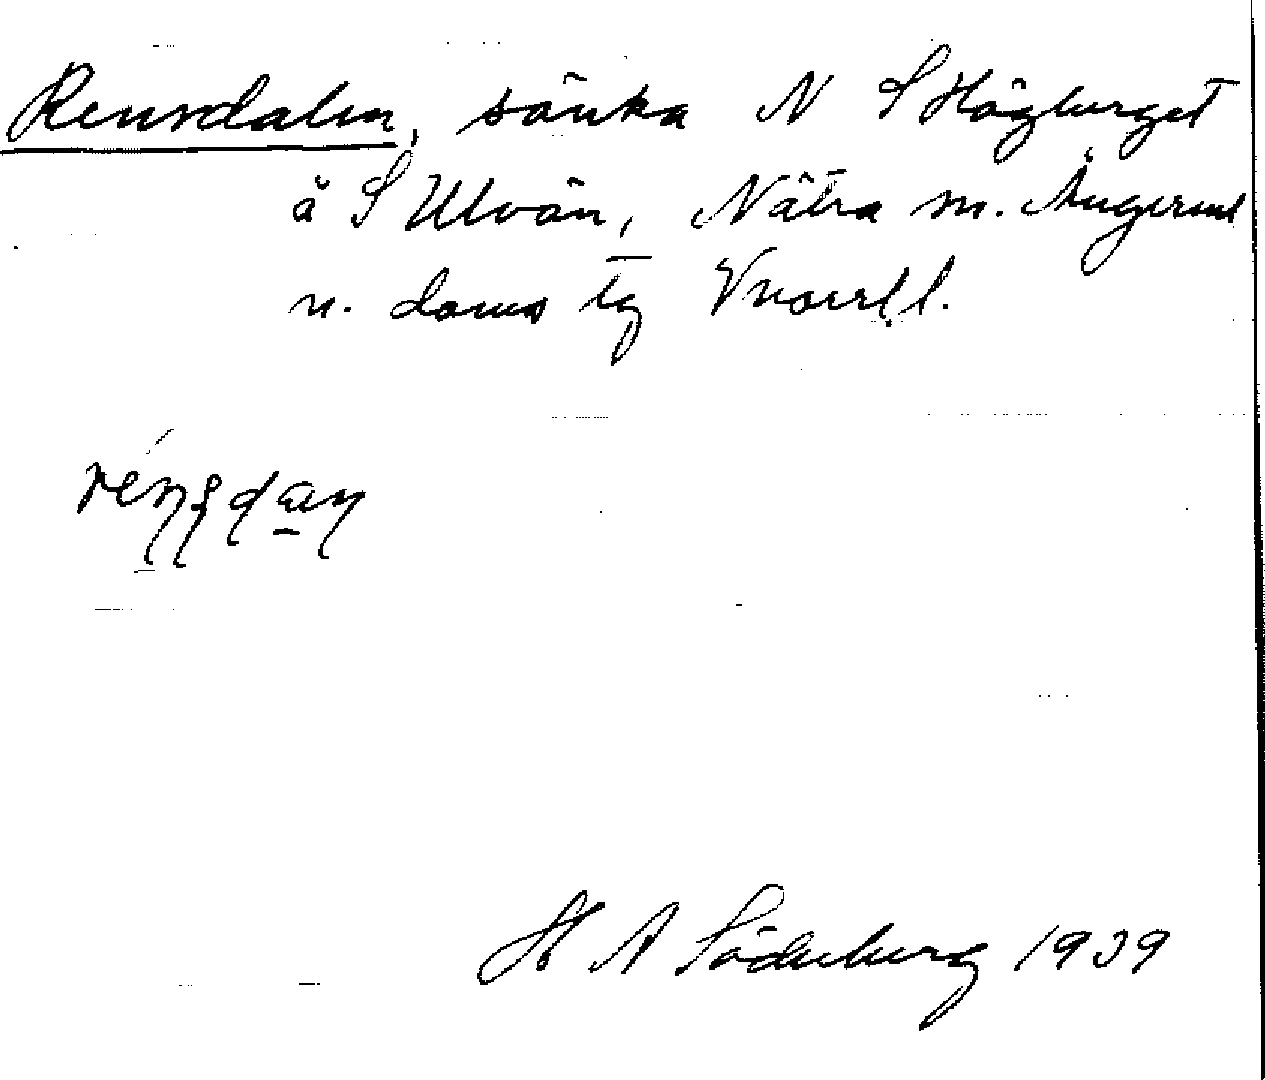 Rensdalen, sänka N S Högberget
å S Ulvön, Nätra sn. Ångerml
n. doms tg Vnorrl l.
H A Söderberg 1939